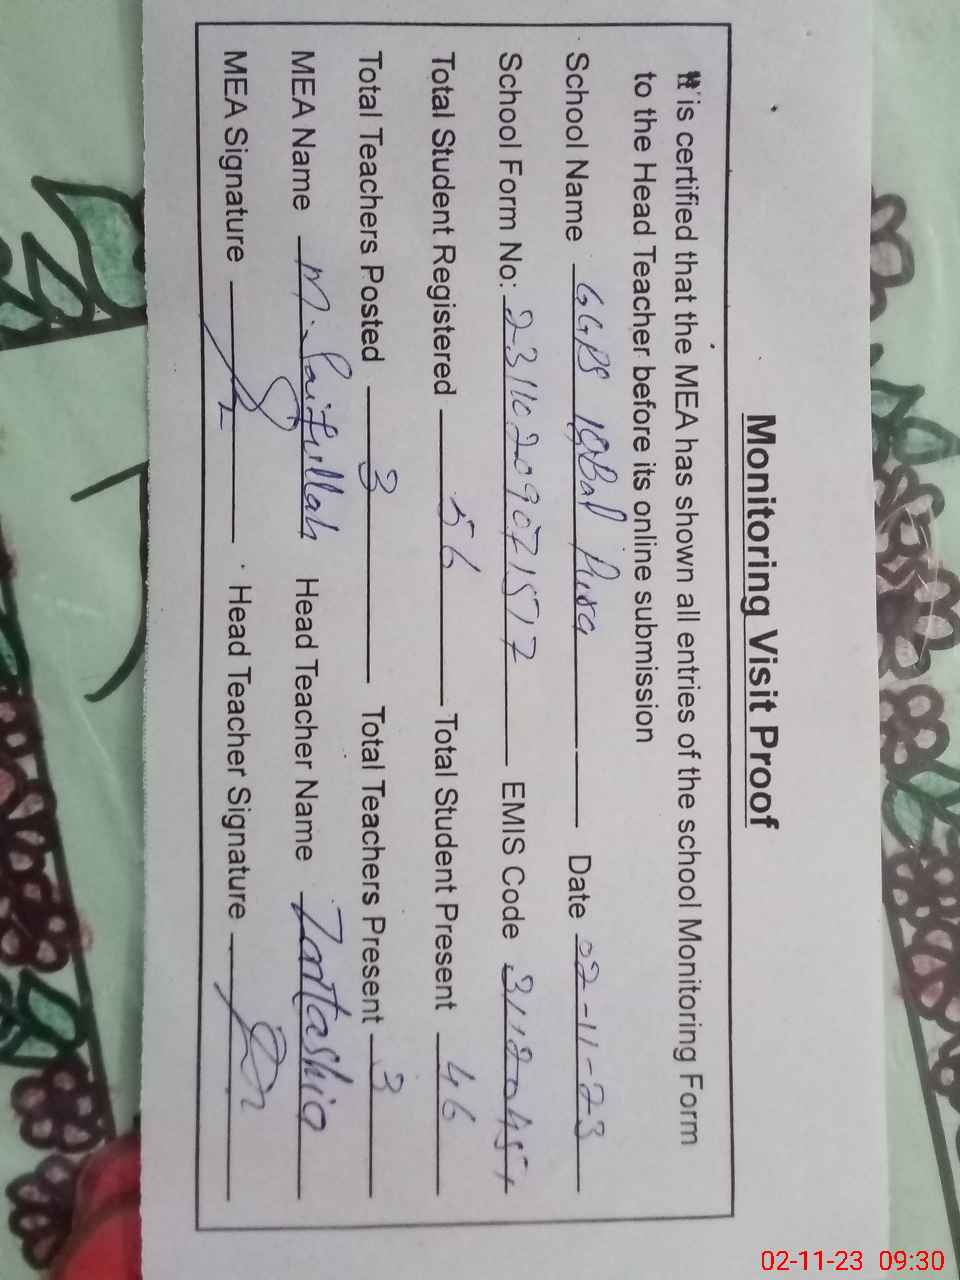 Monitoring Visit Proof
It is certified that the MEA has shown all entries of the school Monitoring Form
to the Head Teacher before its online submission
School Name GGPS Iqbal Pura Date 02-11-23
School Form No: EMIS Code
Total Student Registered 56 Total Student Present 46
Total Teachers Posted 3 Total Teachers Present 3
MEA Name M. Saifullah Head Teacher Name Zartashia
MEA Signature Head Teacher Signature
02-11-23 09:30